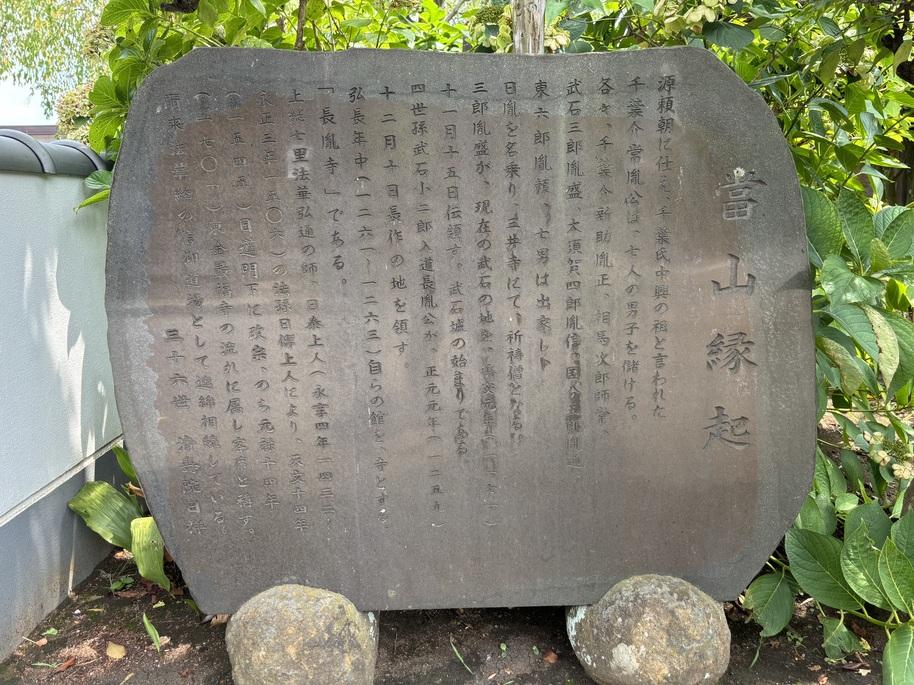 當山縁起
源頼朝に仕え、千葉氏中興の祖と言われた
千葉介常胤公は、七人の男子を儲ける。
各々、千葉介新助胤正、相馬次郎師常、
武石三郎胤盛、大須賀四郎胤信、国分五郎胤通
東六郎胤頼、七男は出家し
日胤を名乗り、三井寺にて、祈祷僧となる。
三郎胤盛が、現在の武石の地を、
十一月十五日伝領す。武石城の始まりである
四世孫武石小二郎入道長胤公が、正元元年(一二五九)
十二月十日長作の地を領す。
弘長年中(一二六一〜一二六三)自らの館を、寺とす。
「長胤寺」である。
上総七里法華弘通の師、日泰上人(永享四年一四三二〜
永正三年一五〇六)の法孫日傳上人により、天文十四年
(一五四五)日蓮門下に改宗、のち元禄十四年
(一七〇一)
の流れに属し
の御道場として連綿相続している。
三十六世